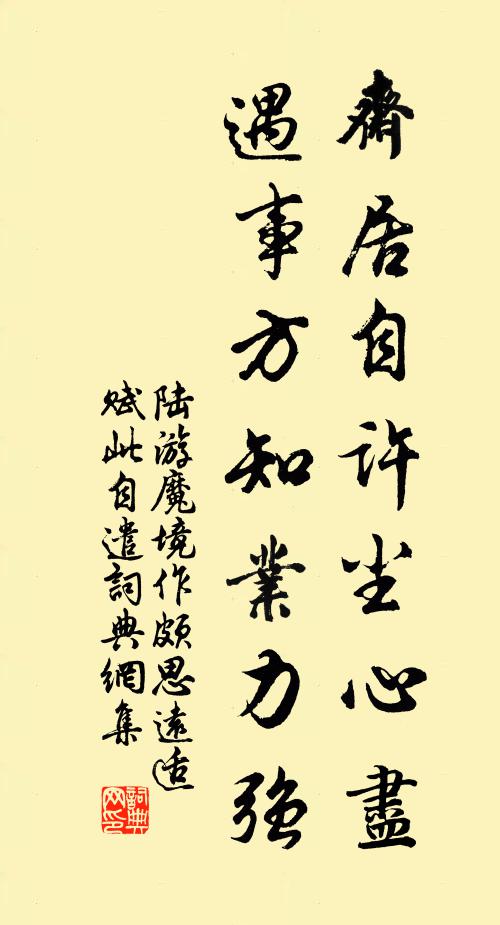 齋居自許尘心盡
遇事方知業力強
陆游魔境作頗思遠适
赋此自遣詞典網集
詞典
网印